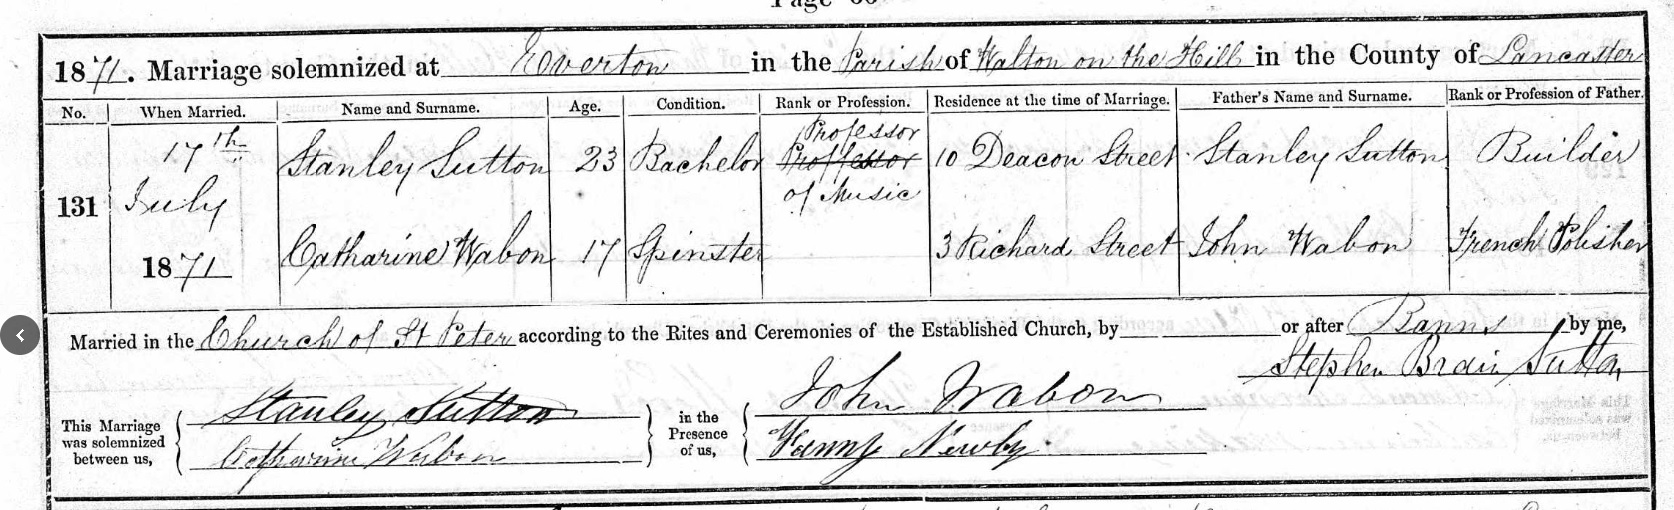 Page 66
1871. Marriage solemnized at Everton in the Parish of Walton on the Hill in the County of Lancaster
No. When Married. Name and Surname. Age. Condition. Rank or Profession. Residence at the time of Marriage. Father's Name and Surname. Rank or Profession of Father.
131 17th July 1871
Stanley Sutton 23 Bachelor Professor Proffessor of Music 10 Deacon Street Stanley Sutton Builder
Catharine Wabon 17 Spinster 3 Richard Street John Wabon French Polisher
Married in the Church of St Peter according to the Rites and Ceremonies of the Established Church, by or after Banns by me,
Stephen Brain Sutton
This Marriage was solemnized between us,
Stanley Sutton
Catharine Wabon
in the Presence of us,
John Wabon
Fanny Newby